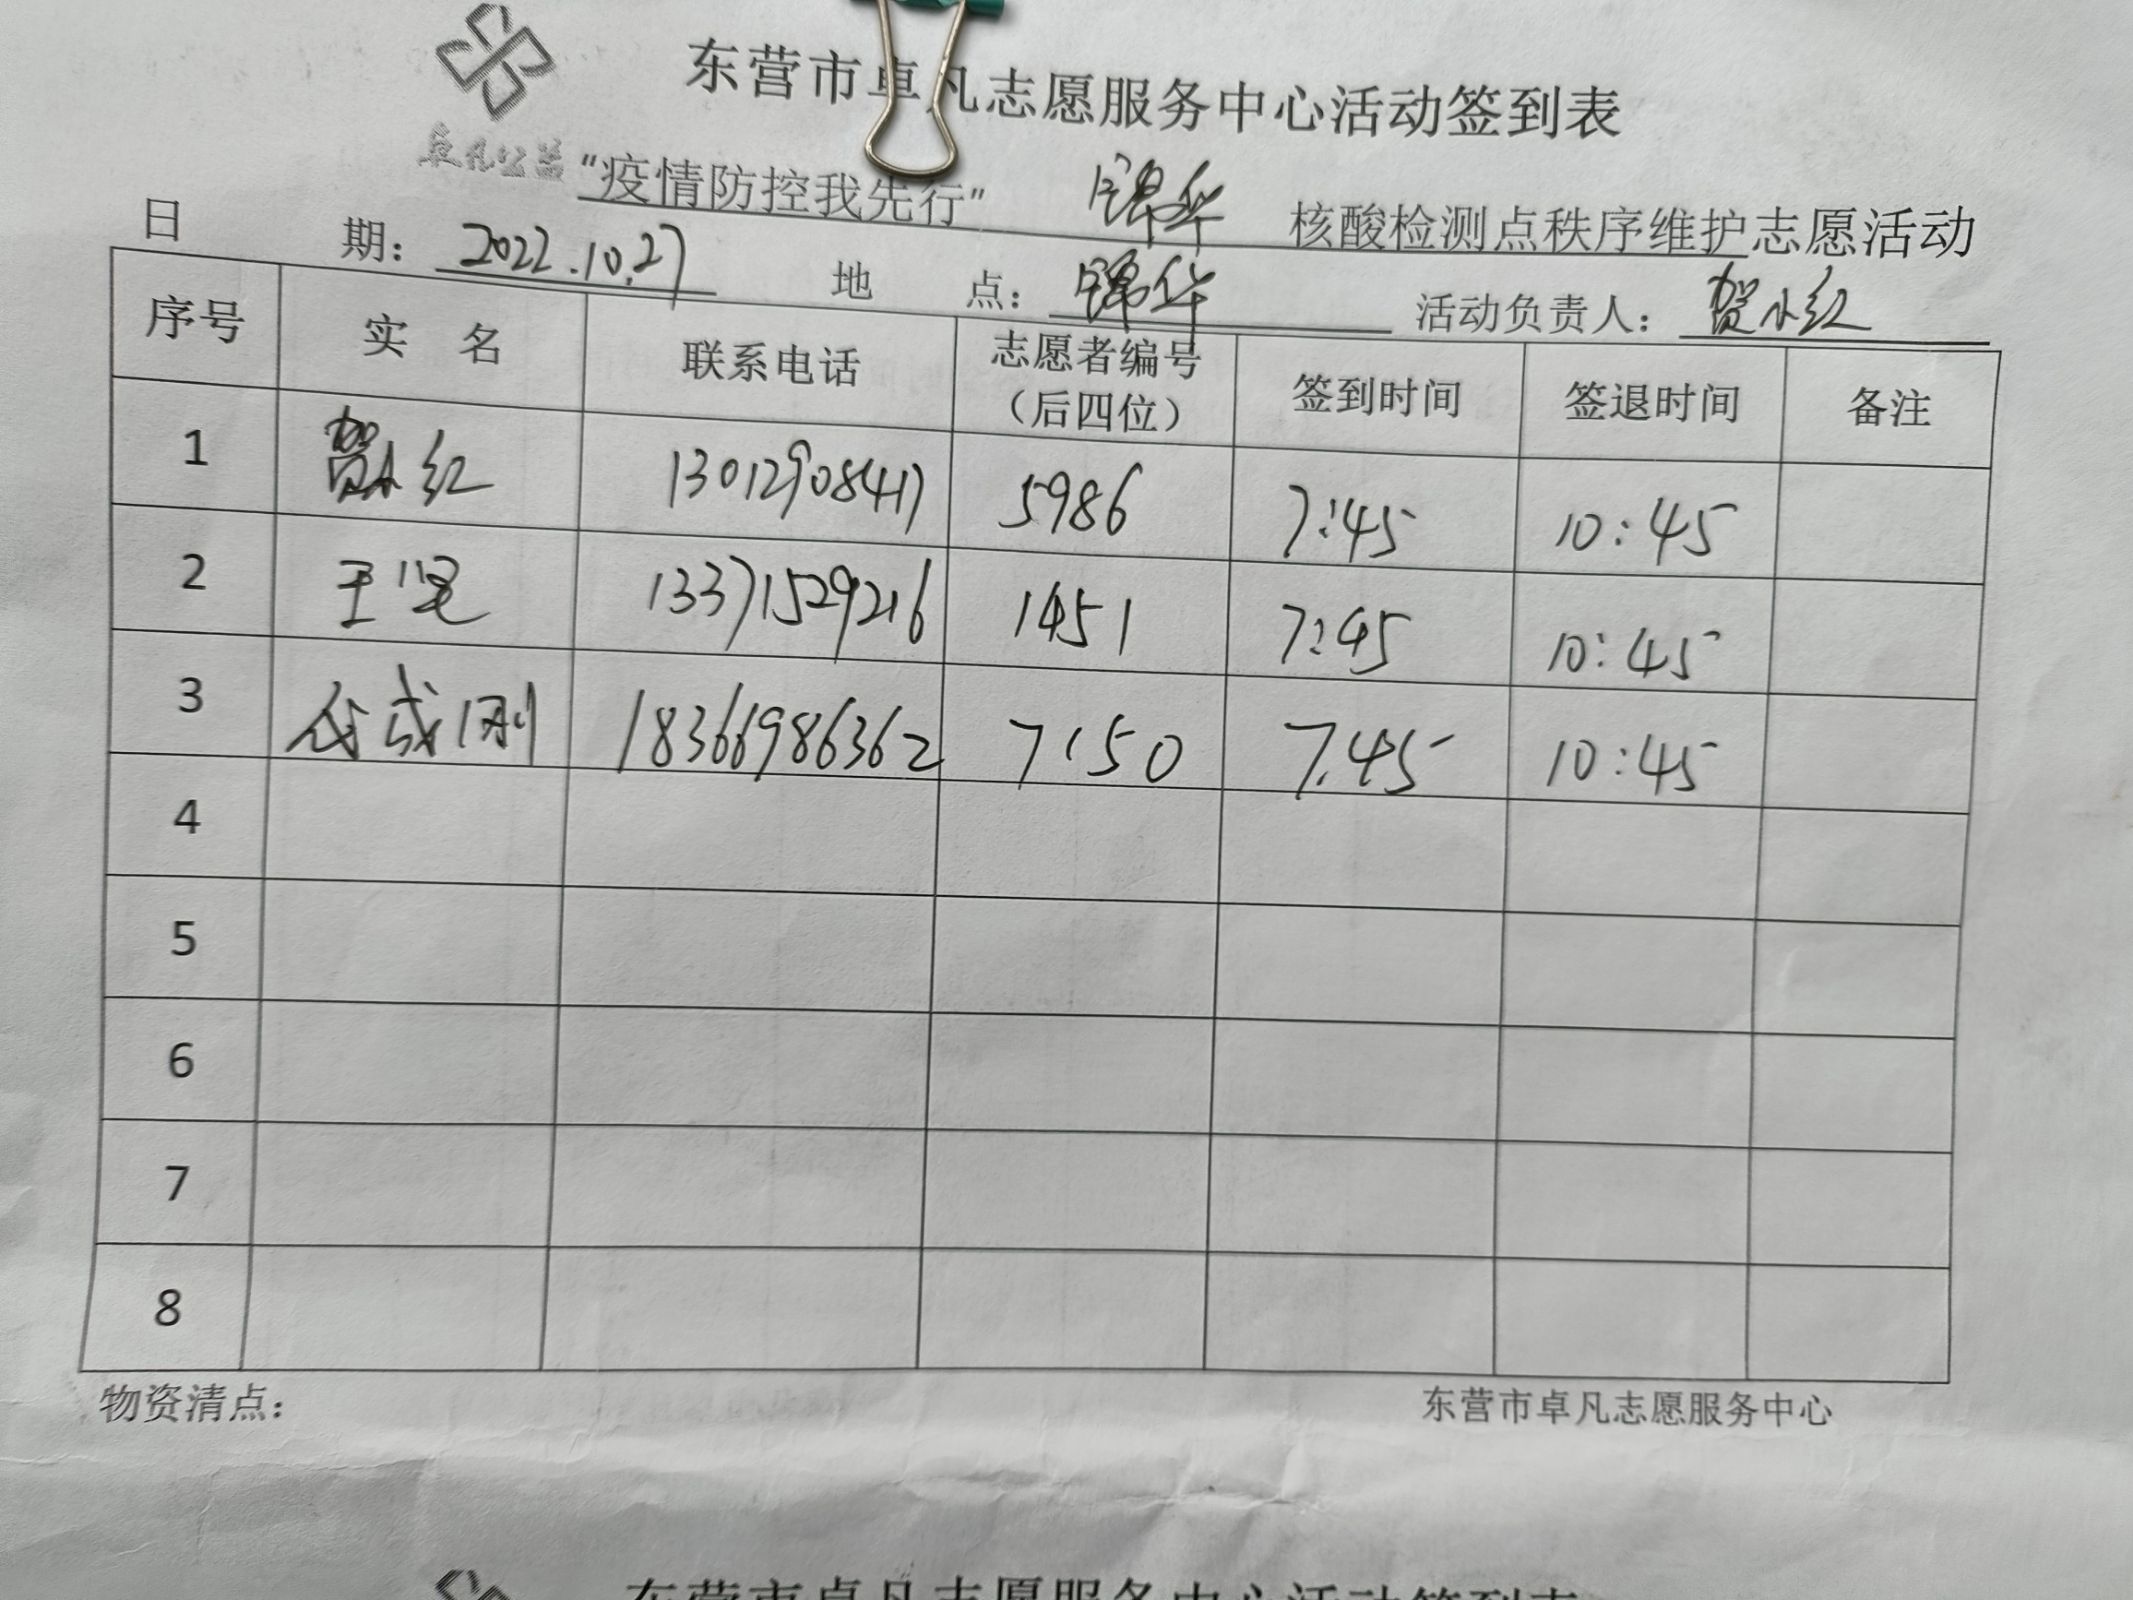 东营市卓凡志愿服务中心活动签到表
卓凡公益
“疫情防控我先行” 锦华 核酸检测点秩序维护志愿活动
日 期: 2022.10.27 地 点: 锦华 活动负责人: 贺小红
序号 实 名 联系电话 志愿者编号（后四位） 签到时间 签退时间 备注
1 贺小红 13012908417 5986 7:45 10:45
2 王坚 13371529216 1451 7:45 10:45
3 成刚 18366986362 7:50 7.45 10:45
4
5
6
7
8
物资清点: 东营市卓凡志愿服务中心
东营市卓凡志愿服务中心活动签到表